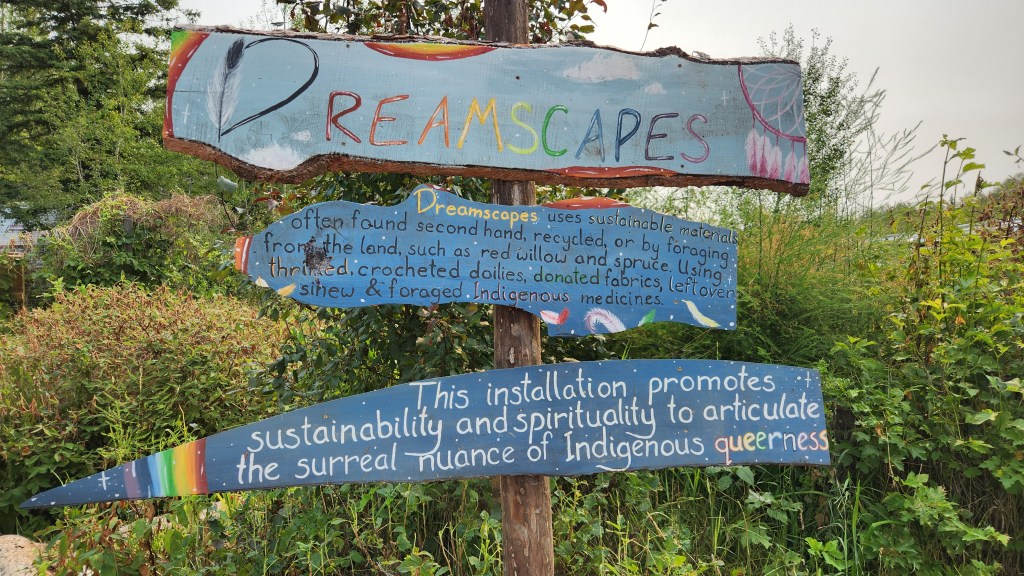 DREAMSCAPES
Dreamscapes uses sustainable materials
often found second hand, recycled, or by foraging
from the land, such as red willow and spruce. Using
thrifted, crocheted doilies, donated fabrics, leftover
sinew & foraged Indigenous medicines.
This installation promotes
sustainability and spirituality to articulate
the surreal nuance of Indigenous queerness